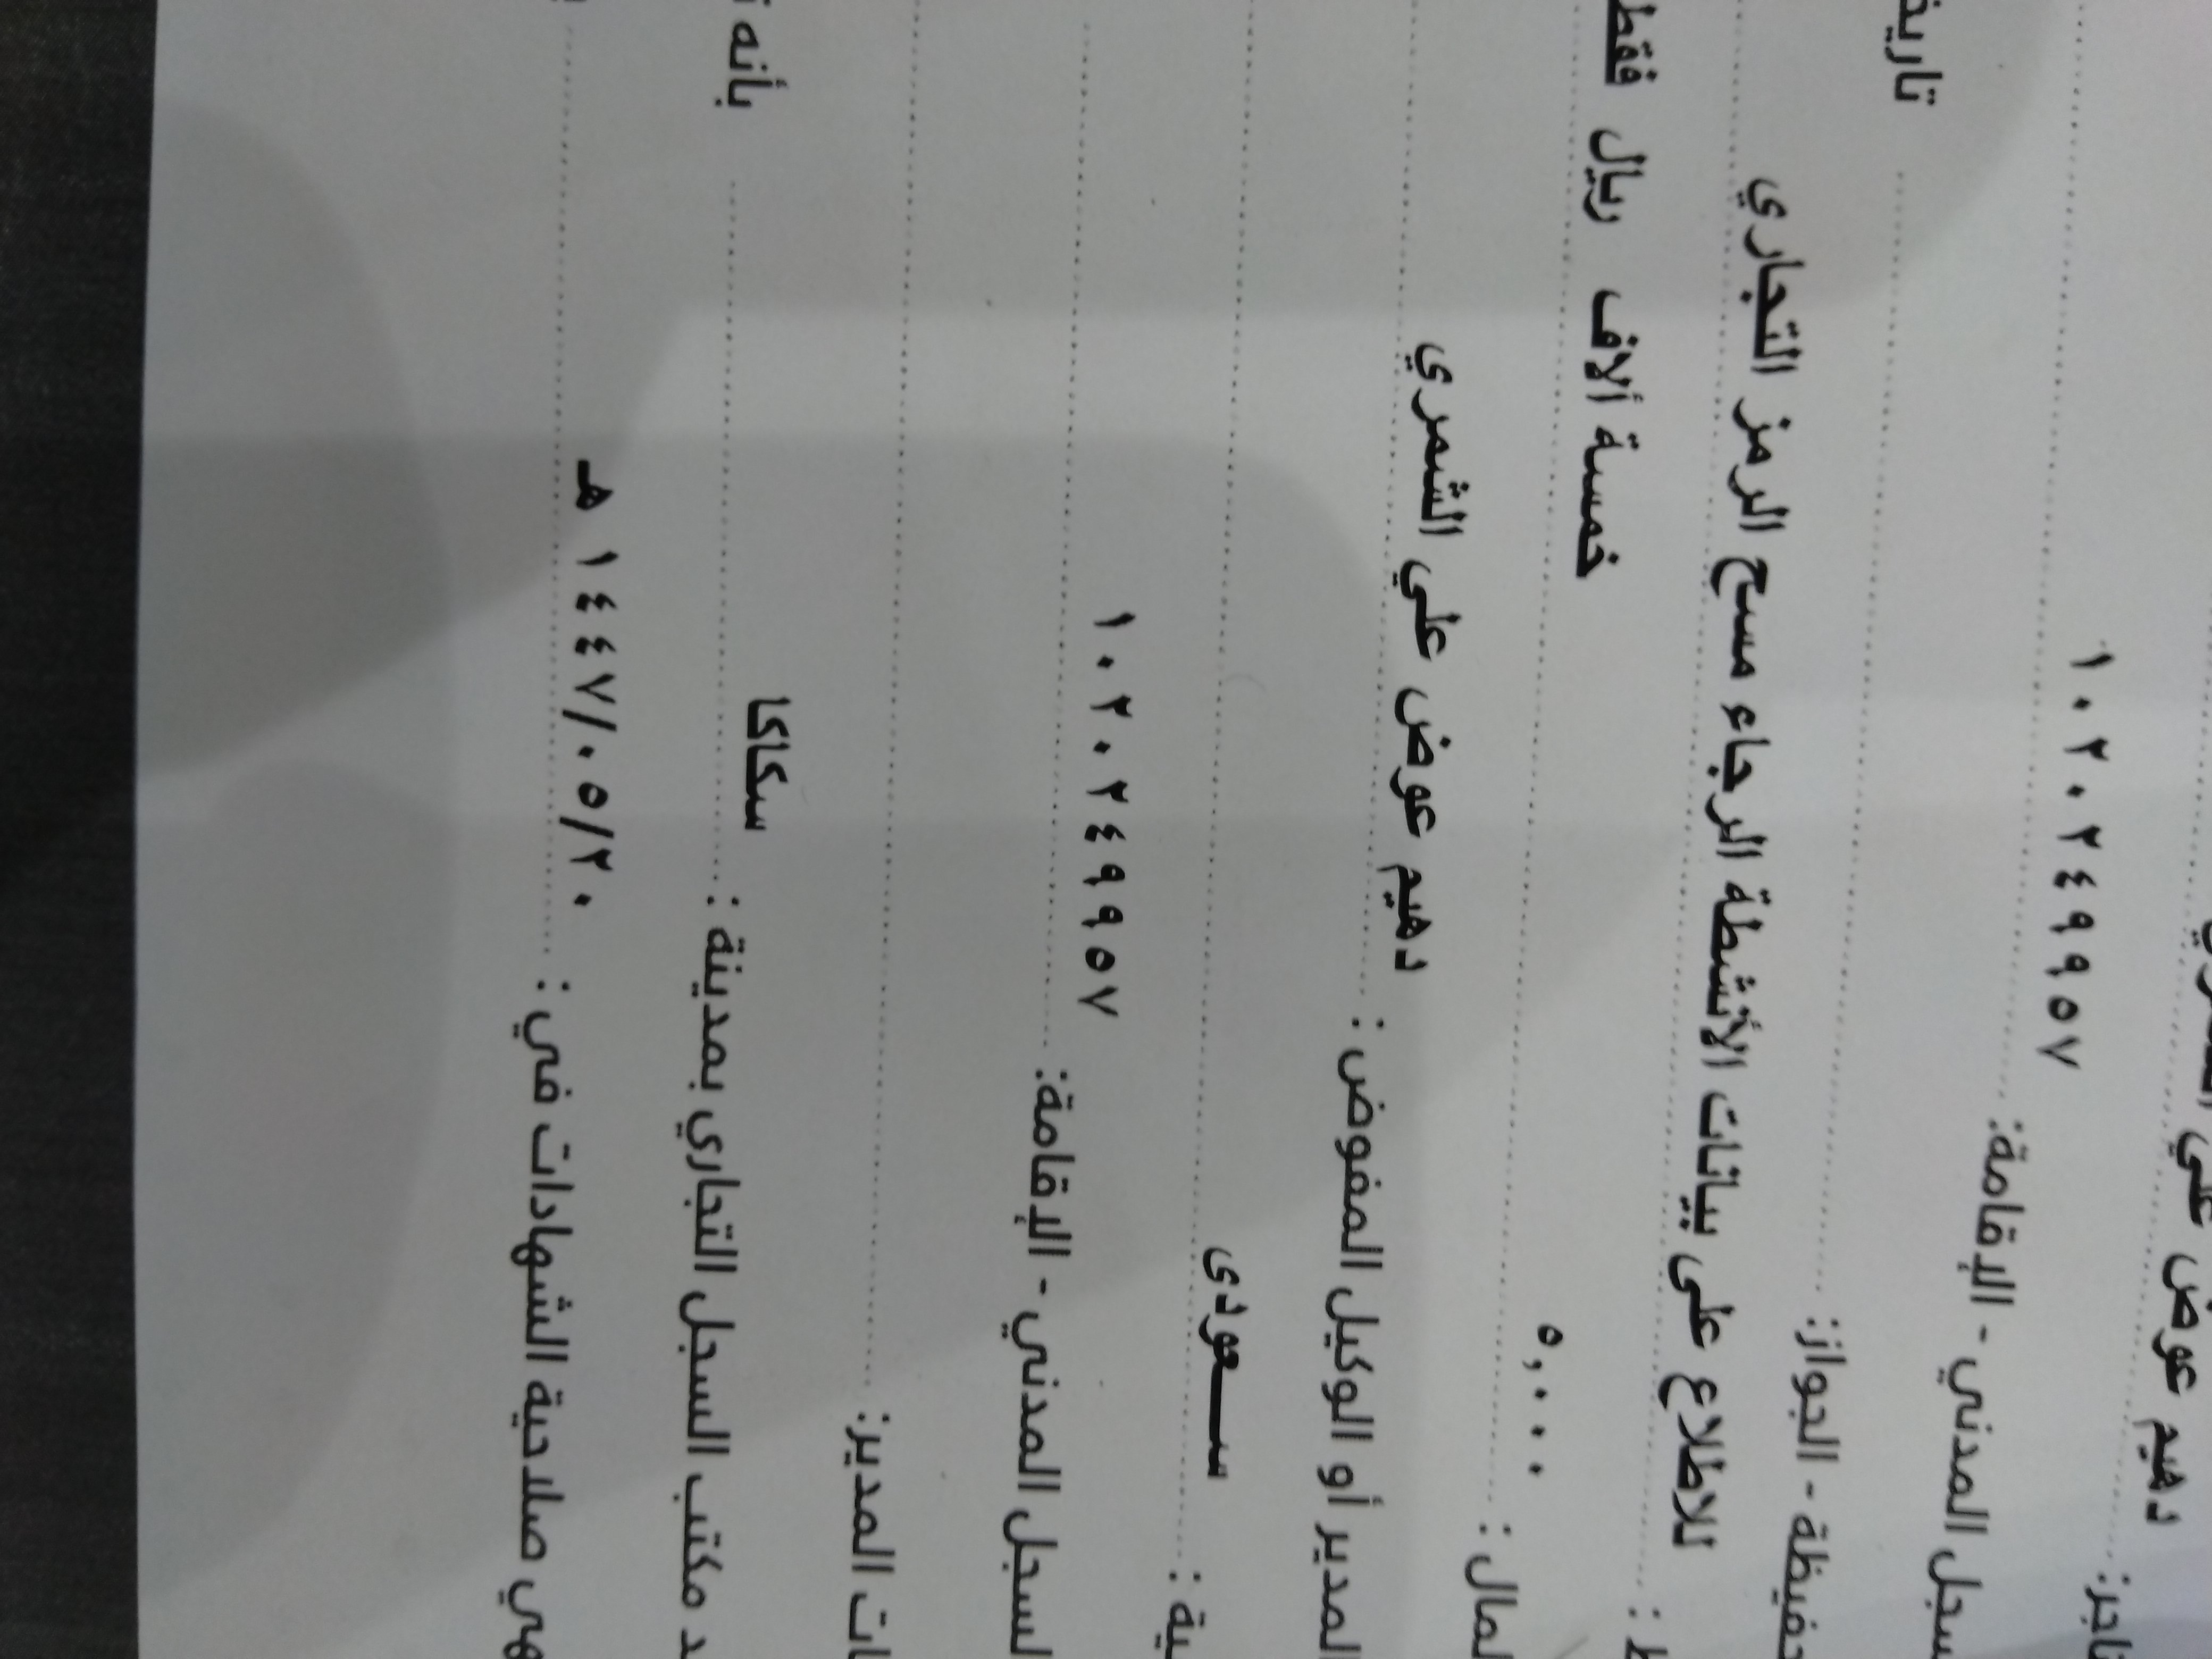 دهيم عوض علي
سجل المدني - الإقامة: ١٠٢٠٢٤٩٩٥٧
الجواز:
للاطلاع على بيانات الأنشطة الرجاء مسح الرمز التجاري
المال : ٥,٠٠٠ خمسة ألاف ريال فقط
المدير أو الوكيل المفوض : دهيم عوض علي الشمري
ية : سعودى
السجل المدني - الإقامة: ١٠٢٠٢٤٩٩٥٧
ات المدير:
د مكتب السجل التجاري بمدينة : سكاكا بأنه
صلاحية الشهادات في : ١٤٤٧/٠٥/٢٠ هـ